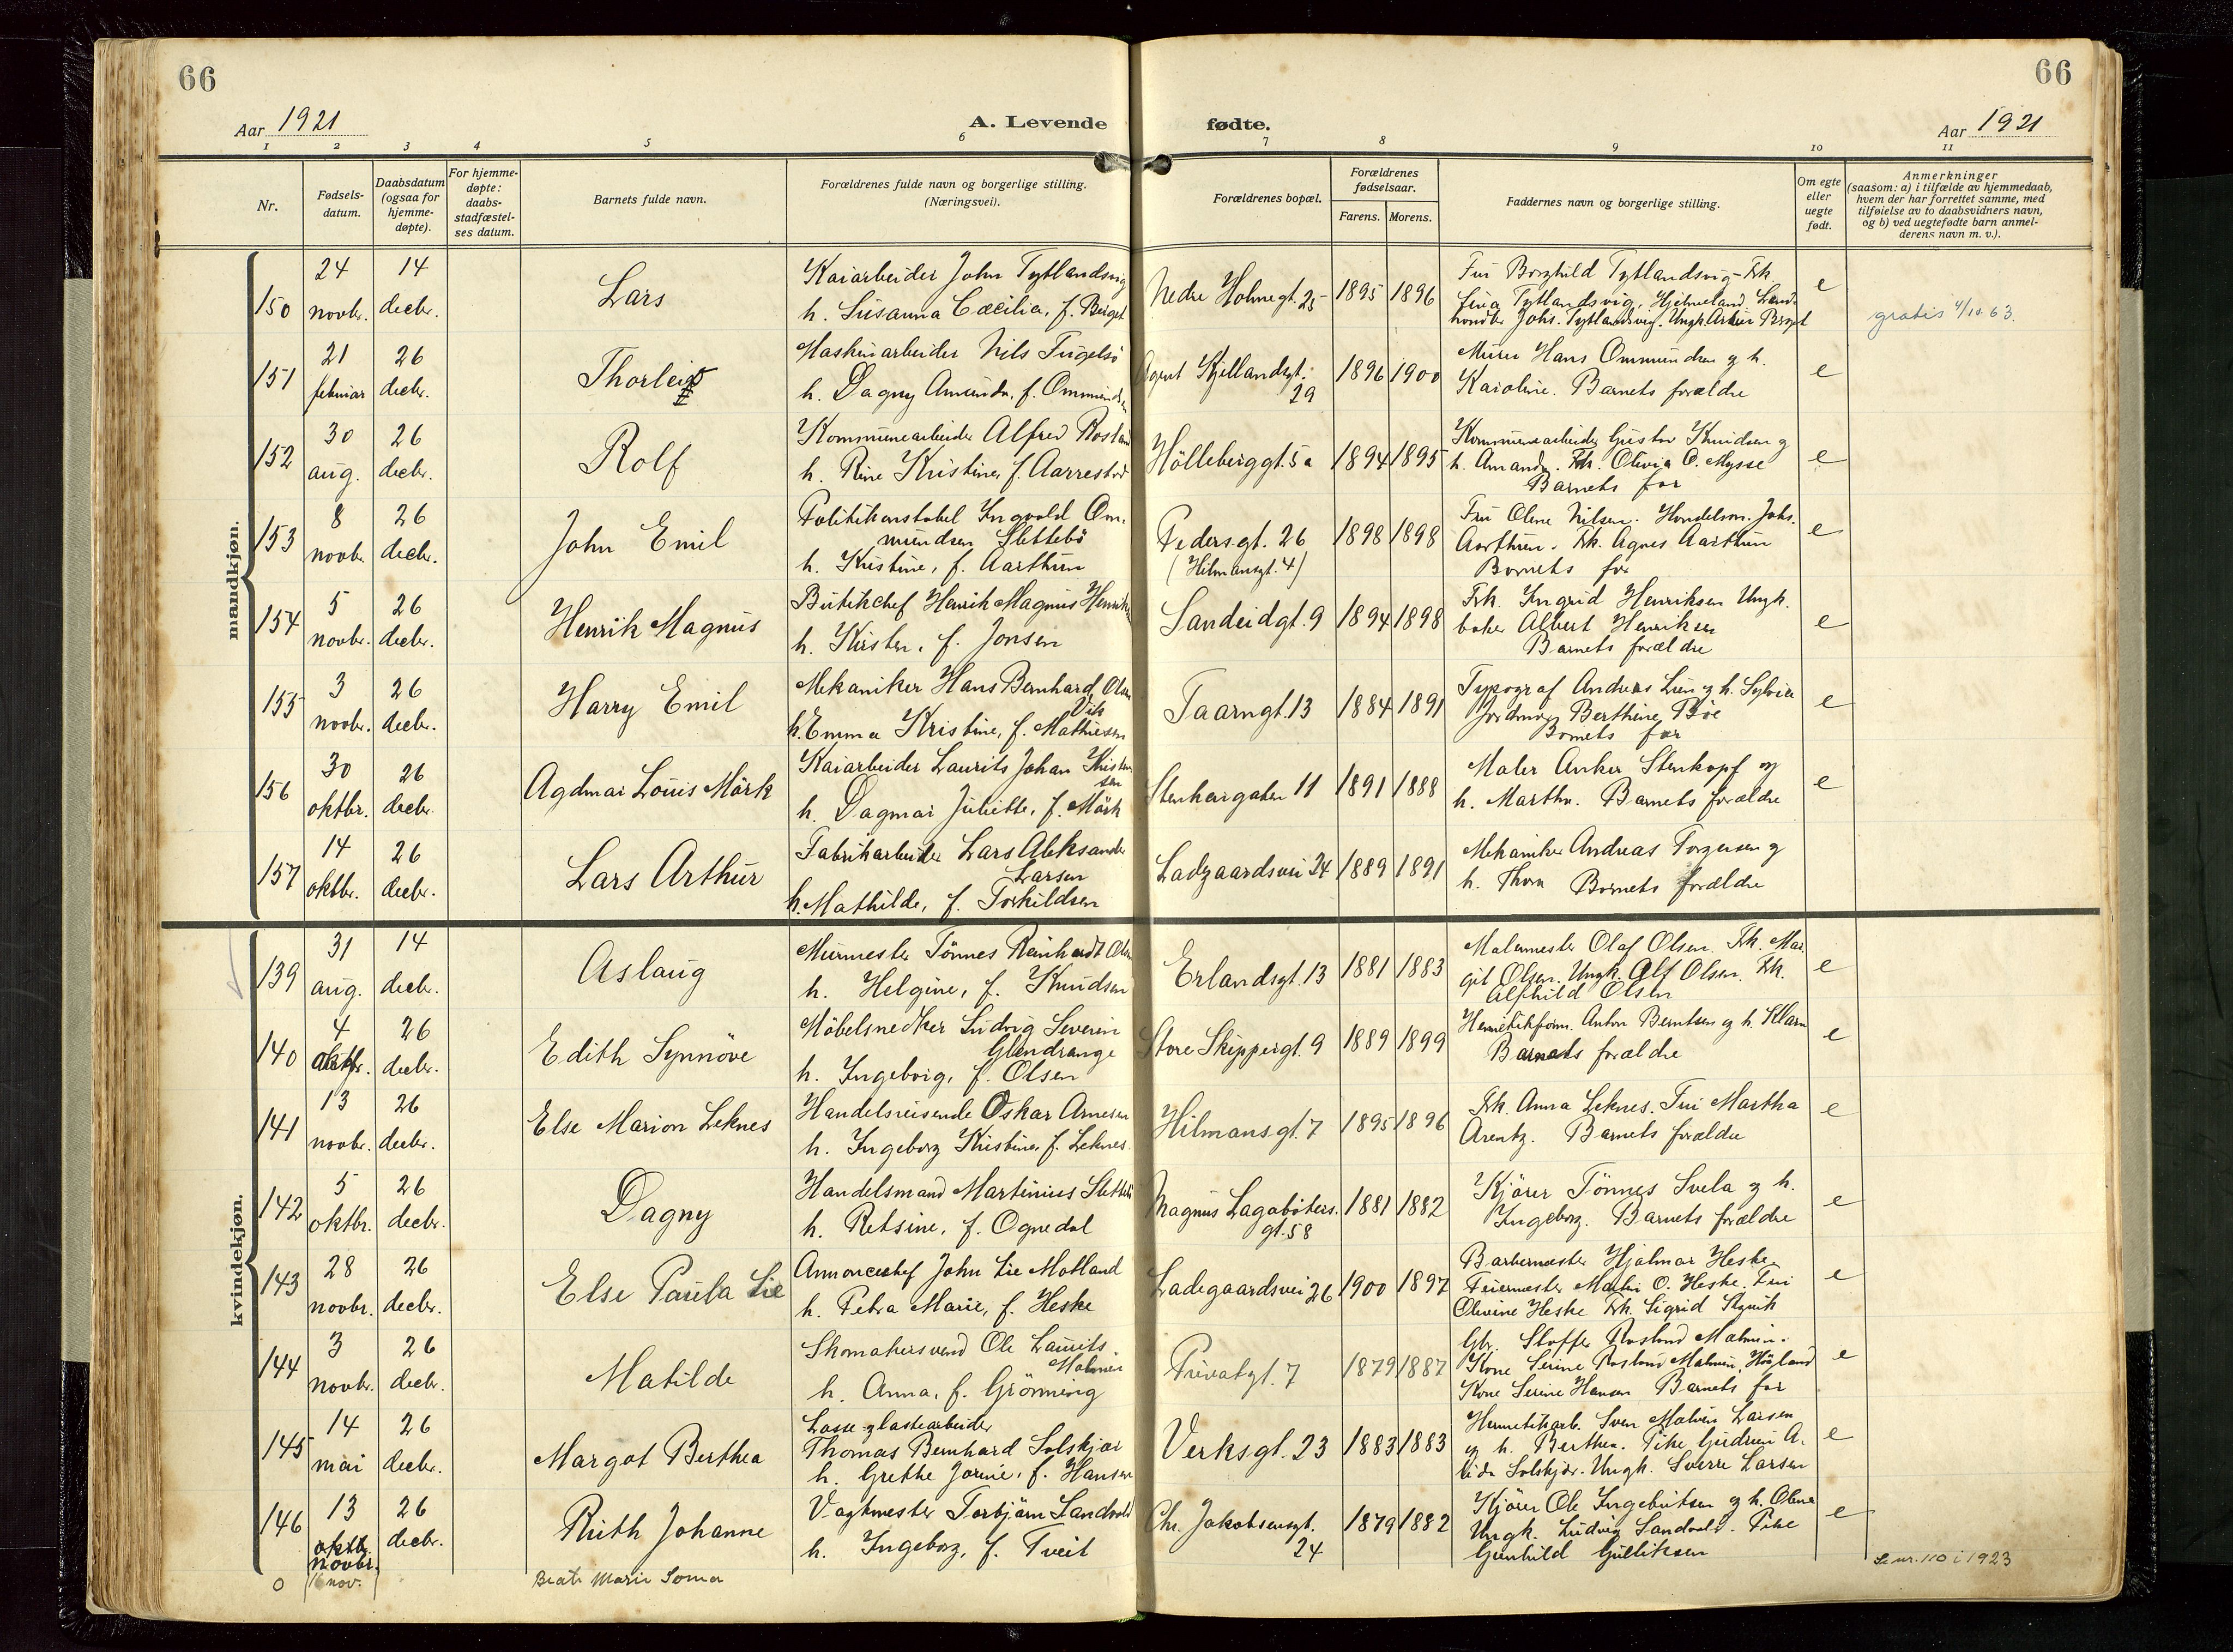 66
66
Aar 1921
A. Levende
fødte.
Aar 1921
1
2
3
4
5
6
7
8
9
10
11
Nr.
Fødsels-
datum.
Daabsdatum
(ogsaa for
hjemme-
døpte).
For hjemme-
døpte:
daabs-
stadfæstel-
ses datum.
Barnets fulde navn.
Forældrenes fulde navn og borgerlige stilling.
(Næringsvei).
Forældrenes bopæl.
Forældrenes
fødselsaar.
Farens.
Morens.
Faddernes navn og borgerlige stilling.
Om egte
eller
uegte
født.
Anmerkninger
(saasom: a) i tilfælde av hjemmedaab,
hvem der har forrettet samme, med
tilføielse av to daabsvidners navn,
og b) ved uegtefødte barn anmel-
derens navn m. v.).
mandkjøn.
150
24
novbr.
14
decbr.
Lars
Kaiarbeider John Tytlandsvig
h. Susanna Cæcilia, f. Berget
Nedre Holmegt. 25
1895
1896
Fru Borghild Tytlandsvig - Frk.
Tytlandsvig, Hjelmeland. Land-
Johs. Tytlandsvig. Ungk. Berget
e
gratis 4/10.63.
151
21
februar
26
decbr.
Thorleif
Maskinarbeider Nils
h. Dagny Amunda, f. Ommundsen
Agent Kjellandsgt.
29
1896
1900
Murer Hans Ommundsen og h.
Karoline. Barnets forældre
e
152
30
aug.
26
decbr.
Rolf
Kommunearbeider Alfred
h. Rine Kristine, f. Aarrestad
Hölleberggt. 5a
1894
1895
Kommunearbeider Gustav Knudsen og
h. Amanda. Frk. Olivia O. Mysse
Barnets far
e
153
8
novbr.
26
decbr.
John Emil
Politikonstabel Ingvald Om-
mundsen Slettebö
h. Kristine, f. Aarthun
Pedersgt. 26
(Hilmansgt. 4)
1898
1898
Fru Olene Nilsen. Handelsm. Johs.
Aarthun. Frk. Agnes Aarthun
Barnets far
e
154
5
novbr.
26
decbr.
Henrik Magnus
Butikchef Henrik Magnus Henriksen
h. Kirsten, f. Jonsen
Sandeidgt. 9
1894
1898
Frk. Ingrid Henriksen Ungk.
baker Albert Henriksen
Barnets forældre
e
155
3
novbr.
26
decbr.
Harry Emil
Mekaniker Hans Bernhard Olsen
Vik
h. Emma Kristine, f. Mathiesen
Taarngt. 13
1884
1891
Typograf Andreas Lien og h. Sylvia
Jordmor Berthine Böe
Barnets far
e
156
30
oktbr.
26
decbr.
Agdmar Louis Mörk
Kaiarbeider Laurits Johan Kristen-
sen
h. Dagmar Juliette, f. Mörk
Stenkargaten 11
1891
1888
Maler Anker Stenkopf og
h. Martha. Barnets forældre
e
157
14
oktbr.
26
decbr.
Lars Arthur
Fabrikarbeider Lars Aleksander
Larsen
h. Mathilde, f. Torkildsen
Ladegaardsvei 24
1889
1891
Mekaniker Andreas Torgersen og
h. Thora Barnets forældre
e
kvindekjøn.
139
31
aug.
14
decbr.
Aslaug
Murmester Tönnes Reinhardt Olsen
h. Helgine, f. Knudsen
Erlandsgt. 13
1881
1883
Malermester Olaf Olsen. Frk. Mar-
git Olsen. Ungk. Alf Olsen. Frk.
Alfhild Olsen
e
140
4
oktbr.
26
decbr.
Edith Synnöve
Möbelsnedker Ludvig Severin
Glendrange
h. Ingeborg, f. Olsen
Store Skippergt. 9
1889
1899
Hermetikform. Anton Berntsen og h. Klara
Barnets forældre
e
141
13
novbr.
26
decbr.
Else Marion Leknes
Handelsreisende Oskar Arnesen
h. Ingeborg Kristine, f. Leknes
Hilmansgt. 7
1895
1896
Frk. Anna Leknes. Fru Martha
Arentz. Barnets forældre
e
142
5
oktbr.
26
decbr.
Dagny
Handelsmand Martinius Slettebö
h. Retsine, f. Ognedal
Magnus Lagabøters
gt. 58
1881
1882
Kjörer Tönnes Svela og h.
Ingeborg. Barnets forældre
e
143
28
novbr.
26
decbr.
Else Paula Lie
Annoncechef John Lie Motland
h. Petra Marie, f. Heske
Ladegaardsvei 26
1900
1897
Barbermester Hjalmar Heske
Feiermester Martin O. Heske. Fru
Olevine Heske Frk. Sigrid
e
144
3
novbr.
26
decbr.
Matilde
Skomakersvend Ole Laurits
Malmin
h. Anna, f. Grönning
Privatgt. 7
1879
1887
Gbr. Stoffer Rosland Malmin.
Kone Serine Rosland Malmin, Höyland
Kone Serine Hansen Barnets far
e
145
14
mai
26
decbr.
Margot Berthea
Losse- og lastearbeider
Thomas Bernhard Solskjær
h. Grethe Jorine, f. Hansen
Verksgt. 23
1883
1883
Hermetikarb. Sven Malvin Larsen
og h. Berthea. Pike Gudrun A-
lida Solskjær. Ungk. Sverre Larsen
e
146
13
oktbr.
novbr.
26
decbr.
Ruth Johanne
Vagtmester Torbjörn Sandvold
h. Ingeborg, f. Tveit
Chr. Jakobsensgt.
24
1879
1882
Kjörer Ole Ingebretsen og h. Olena
Ungk. Ludvig Sandvold. Pike
Gunhild Gulliksen
e
0
(16 nov.)
Beate Marie Soma
Se nr. 110 i 1923